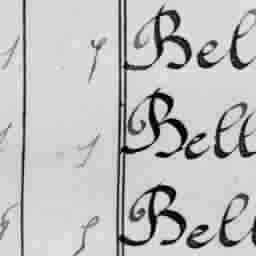 1 4 Bel
1 1 Bell
5 Bell